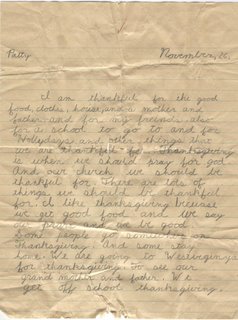 Patty November, 26,
I am thankful for the good
food, clothes, house, and a mother and
father and for my freinds also
for a school to go to and for
Holeydays and other things that
we are thankful for. Thanksgiving
is when we should pray for god.
And our church we should be
thankful for. There are lots of
things we should be thankful
for. I like thanksgiving because
we get good food and we say
our and we be good.
Some people go on
Thanksgiving. And some stay
home. We are going to Westvirginya
for thanksgiving. To see our
grand mother and father. We
get off school thanksgiving.